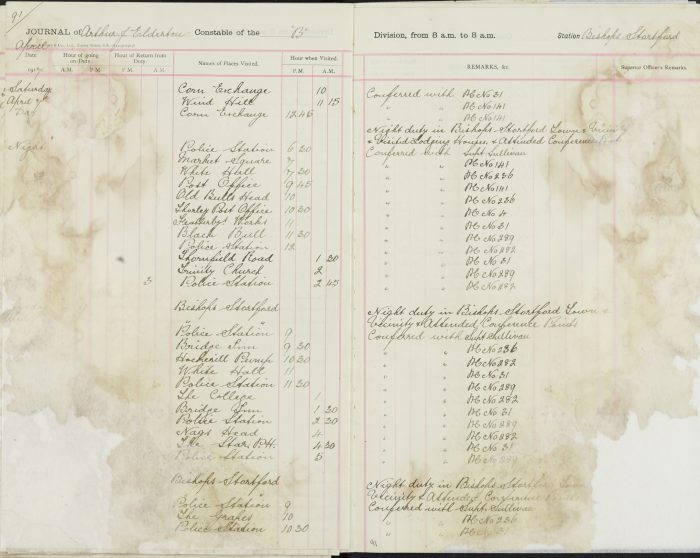 91
JOURNAL of Arthur J. Elderton Constable of the "B" Division, from 8 a.m. to 8 a.m. Station Bishops Stortford
April
Date Hour of going on Duty. Hour of Return from Duty. Names of Places Visited. Hour when Visited. REMARKS, &c. Superior Officer's Remarks.
191 A.M. P.M. P.M. A.M. P.M. A.M.
Saturday Corn Exchange 10 Conferred with PC No 31
April 7th Wind Hill 11 15 " " PC No 141
Day Corn Exchange 12 45 " " PC No 141
Night duty in Bishops Stortford Town & Vicinity
Night & Visited Lodging Houses, & Attended Conference
Police Station 6 30 Conferred with Supt Sullivan
Market Square 7 " " PC No 141
White Hall 7 30 " " PC No 236
Post Office 9 45 " " PC No 141
Old Bulls Head 10 " " PC No 236
Thorley Post Office 10 30 " " PC No 4
Works 11 " " PC No 31
Black Bull 11 30 " " PC No 289
Police Station 12 " " PC No 282
Thornfield Road 1 30 " " PC No 31
Trinity Church 2 " " PC No 289
3 Police Station 2 45 " " PC No 282
Bishops Stortford Night duty in Bishops Stortford Town &
Vicinity & Attended Conference Points
Police Station 9 Conferred with Supt Sullivan
Bridge Inn 9 30 " " PC No 236
Hockerill Pump 10 30 " " PC No 282
White Hall 11 " " PC No 31
Police Station 11 30 " " PC No 289
The College 1 " " PC No 282
Bridge Inn 1 30 " " PC No 31
Police Station 2 30 " " PC No 289
Nags Head 4 " " PC No 282
The Star P.H. 4 30 " " PC No 31
Police Station 5 " " PC No 289
Bishops Stortford Night duty in Bishops Stortford Town
Vicinity & Attended Conference Points
Police Station 9 Conferred with Supt. Sullivan
The Grapes 10 " " PC No 236
Police Station 10 30 " " PC No 31